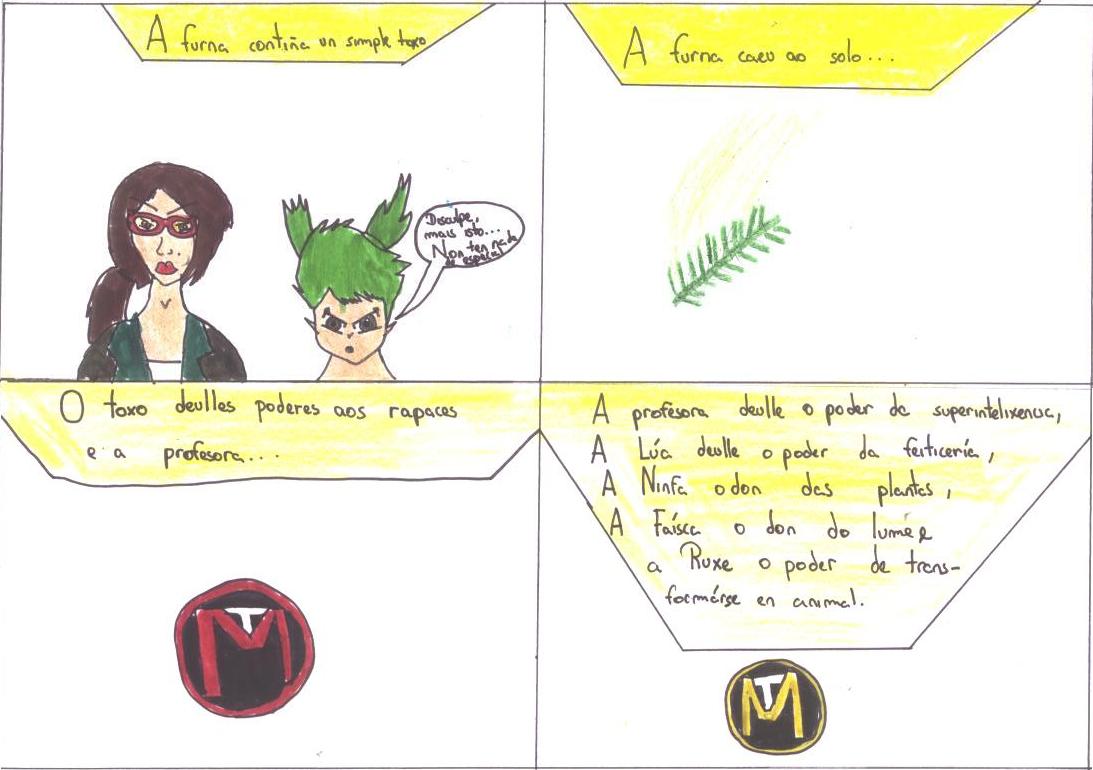 A furna contiña un simple toxo
Disculpe,
mais isto...
Non ten nada
de especial
A furna caeu ao solo...
O toxo deulles poderes aos rapaces
e a profesora...
TM
A profesora deulle o poder da superintelixencia,
A Lúa deulle o poder da feiticería,
A Ninfa o don das plantas,
A Faísca o don do lume e
a Ruxe o poder de trans-
formárse en animal.
TM